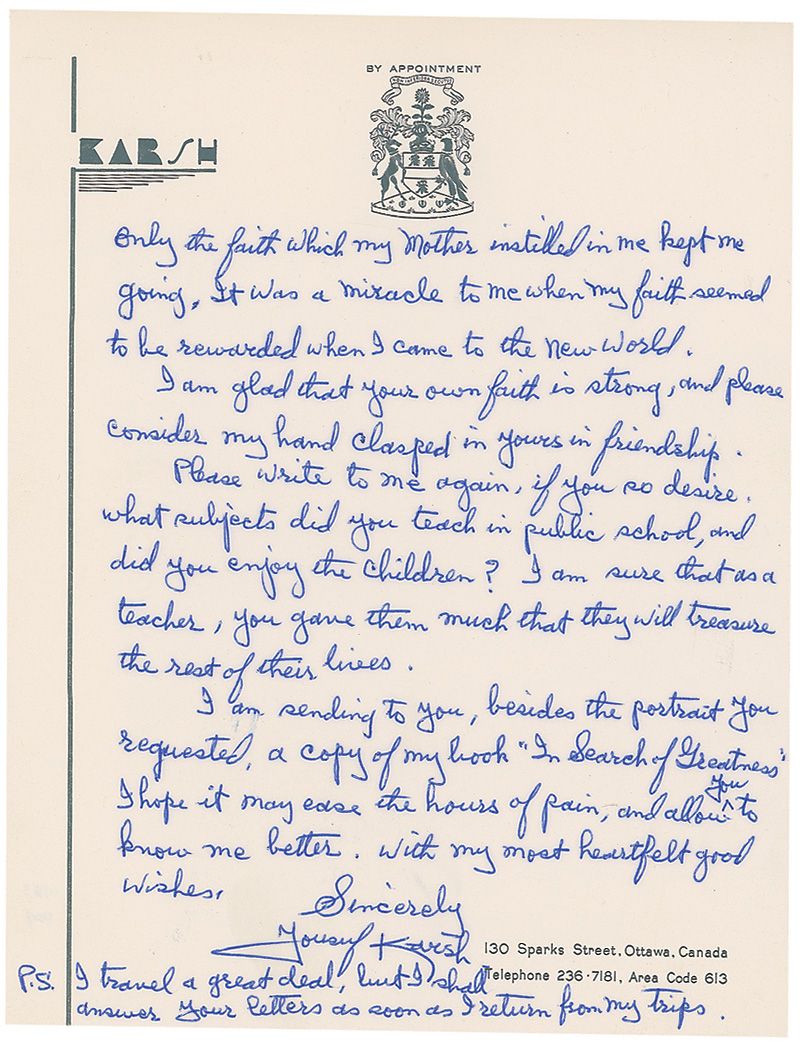 BY APPOINTMENT
KARSH
Only the faith which my Mother instilled in me kept me
going. It was a miracle to me when my faith seemed
to be rewarded when I came to the New World.
I am glad that your own faith is strong, and please
consider my hand clasped in yours in friendship.
Please write to me again, if you so desire.
What subjects did you teach in public school, and
did you enjoy the children? I am sure that as a
teacher, you gave them much that they will treasure
the rest of their lives.
I am sending to you, besides the portrait you
requested, a copy of my book "In Search of Greatness"
I hope it may ease the hours of pain, and allow you to
know me better. With my most heartfelt good
wishes,
Sincerely
Yousuf Karsh
130 Sparks Street, Ottawa, Canada
Telephone 236·7181, Area Code 613
P.S. I travel a great deal, but I shall
answer your letters as soon as I return from my trips.